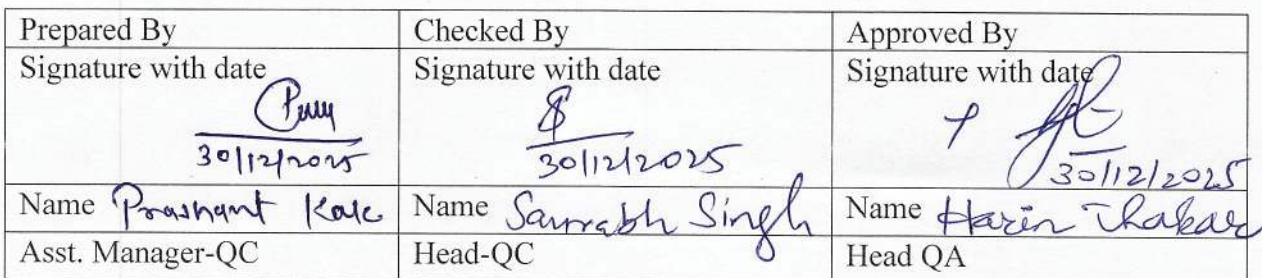 Prepared By Checked By Approved By
Signature with date Signature with date Signature with date
30/12/2025 30/12/2025 30/12/2025
Name Prashant Kale Name Saurabh Singh Name Harin Thakar
Asst. Manager-QC Head-QC Head QA